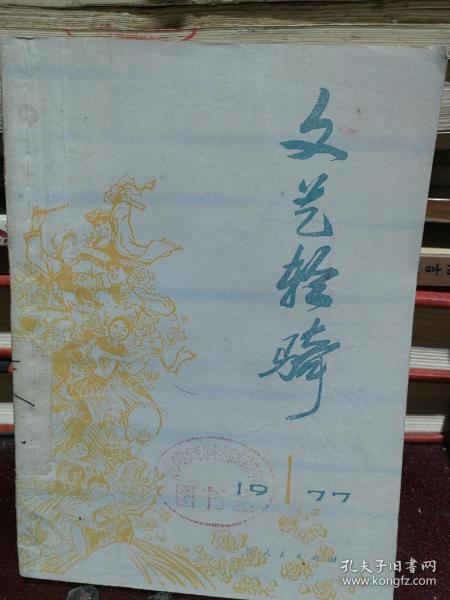 文艺轻骑
1
19 77
图书
人民出版社
孔夫子旧书网
www.kongfz.com